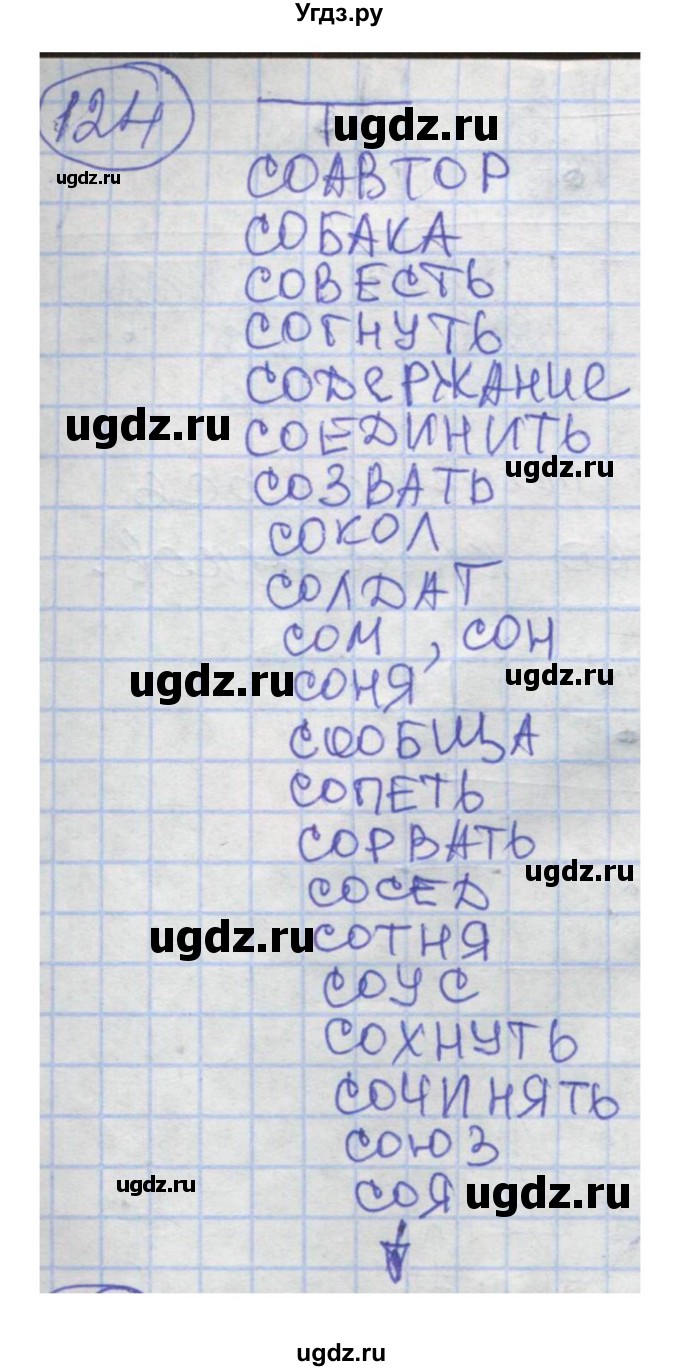 Угдз.ру
124
ugdz.ru
ugdz.ru
СОАВТОР
СОБАКА
СОВЕСТЬ
СОГНУТЬ
СОДЕРЖАНИЕ
ugdz.ru СОЕДИНИТЬ
ugdz.ru
СОЗВАТЬ
СОКОЛ
СОЛДАТ
СОМ, СОН
ugdz.ru СОНЯ ugdz.ru
СООБЩА
СОПЕТЬ
СОРВАТЬ
ugdz.ru
СОСЕД
ugdz.ru СОТНЯ
СОУС
СОХНУТЬ
СОЧИНЯТЬ
СОЮЗ
ugdz.ru СОЯ ugdz.ru
ugdz.ru